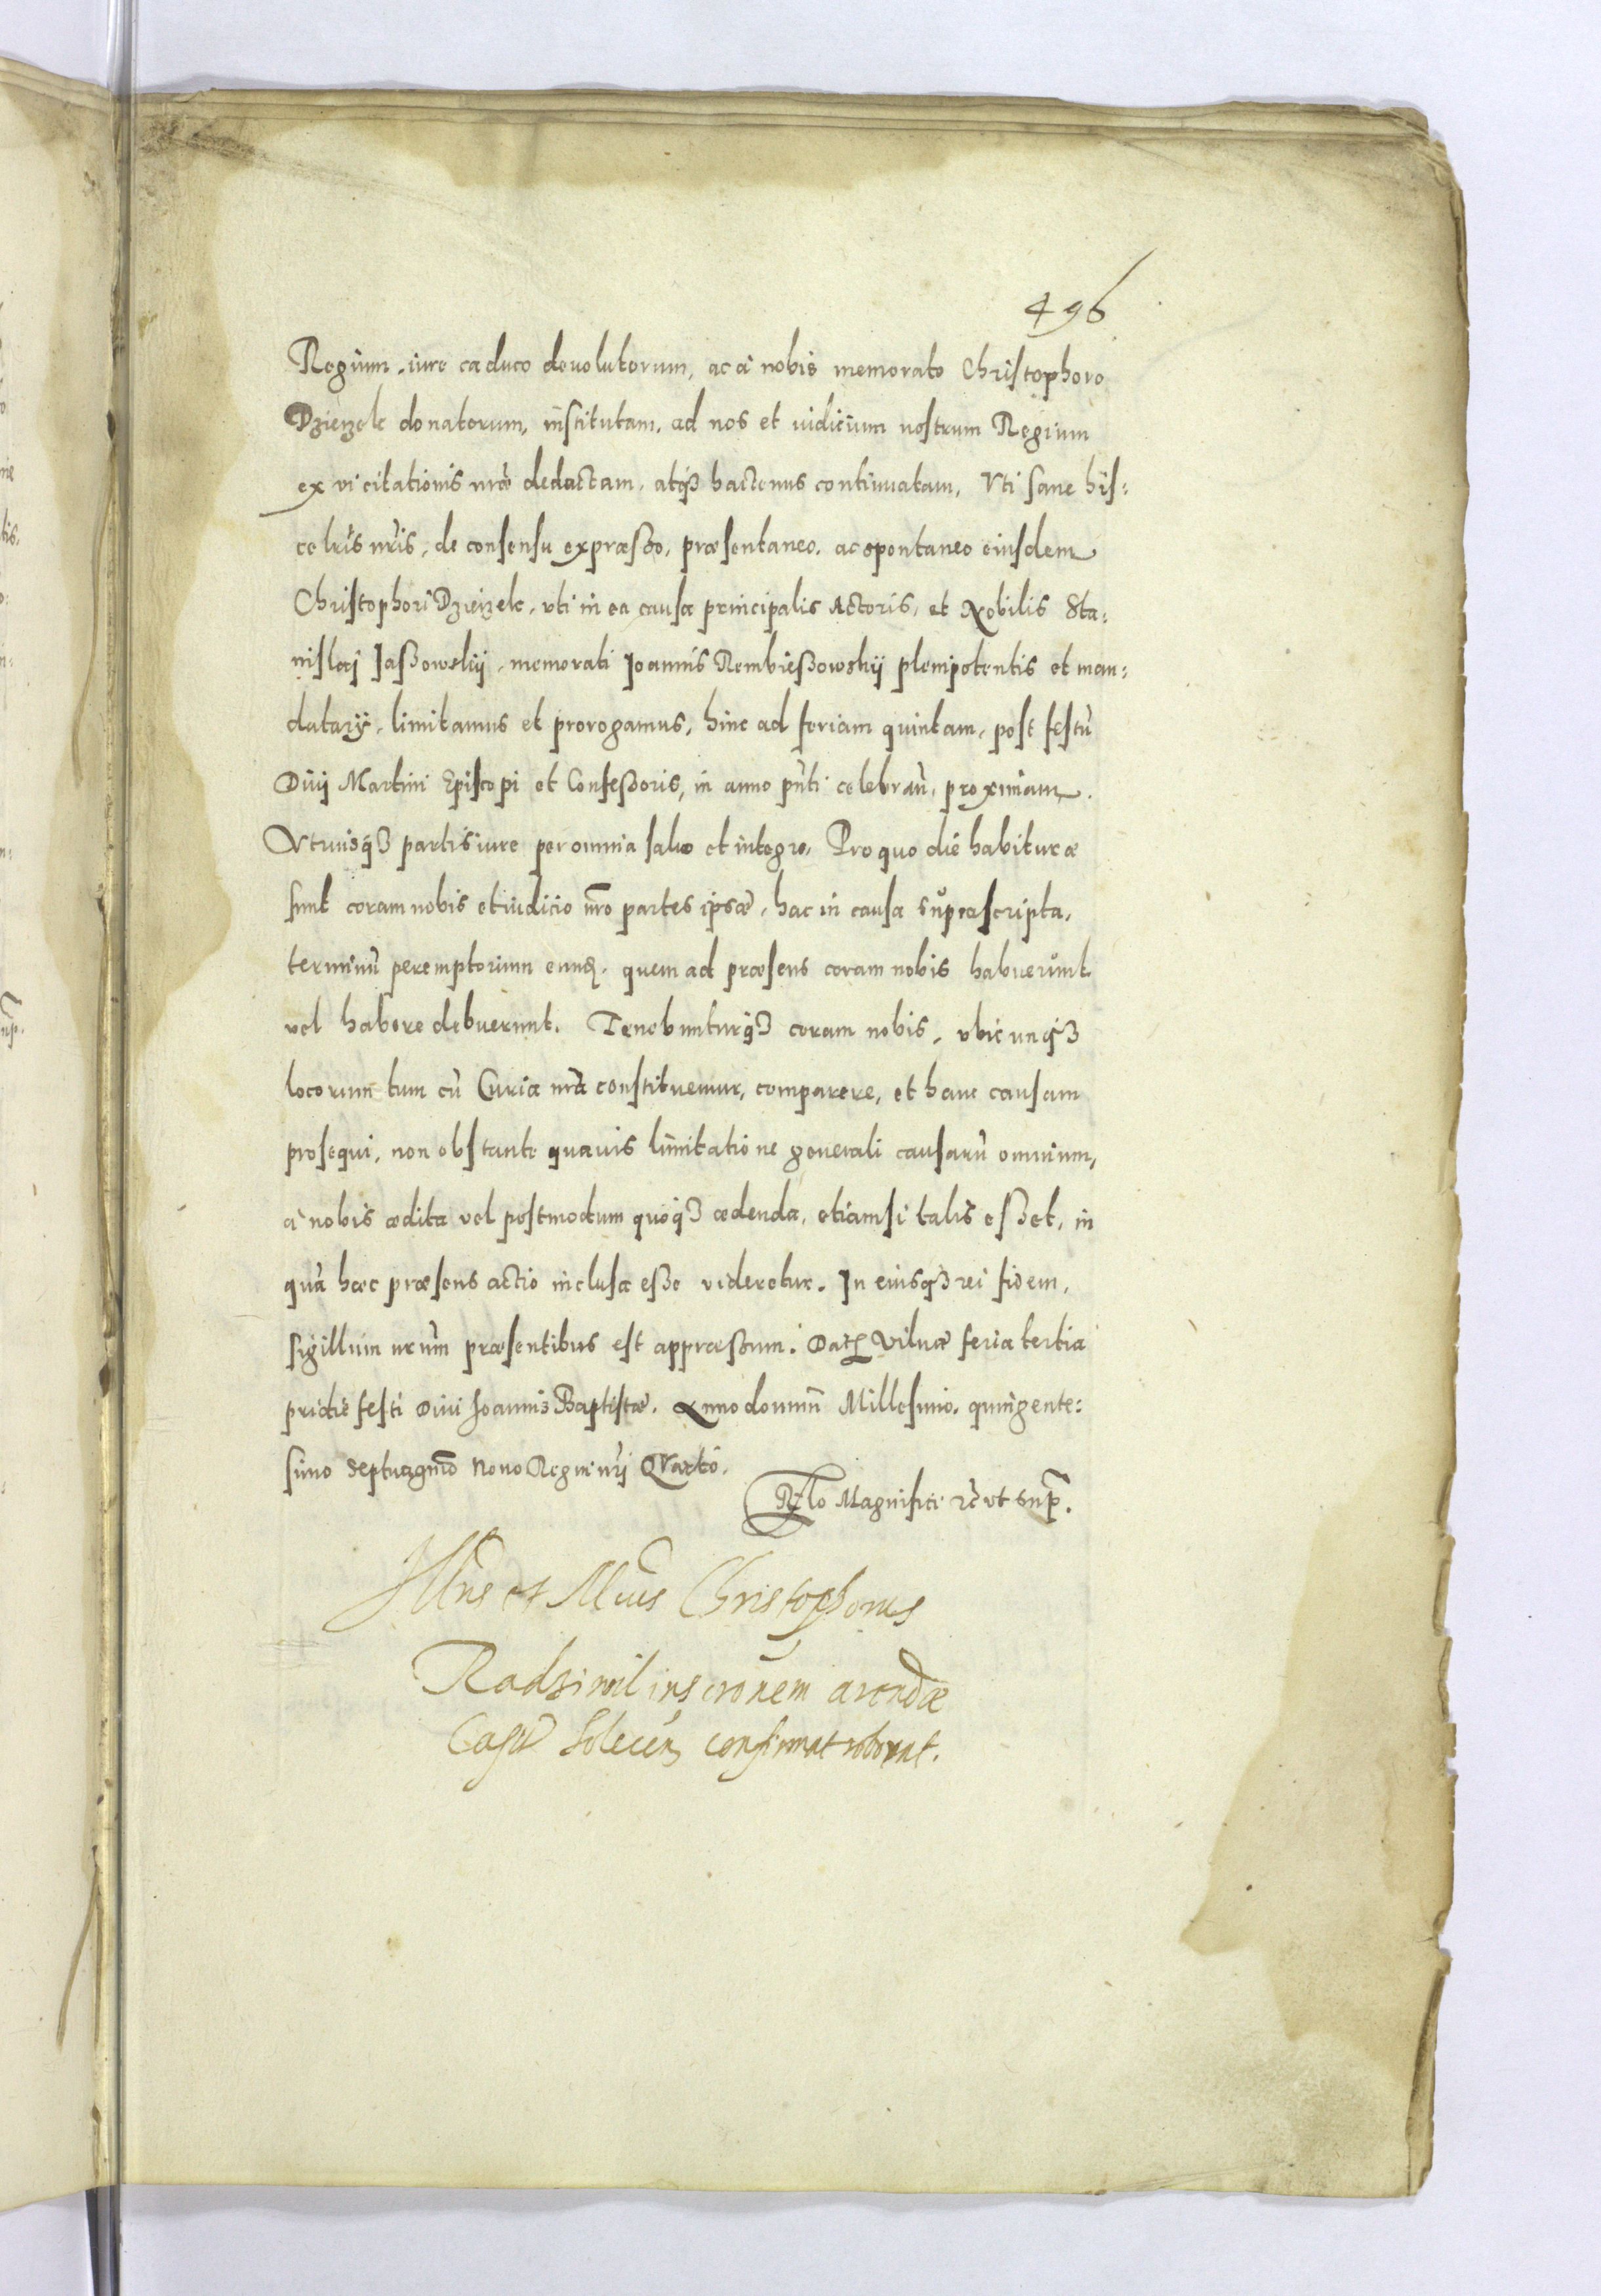 496
Regium iure caduco deuolutorum, ac à nobis memorato Christophoro
Dzierzek donatorum, institutam, ad nos et iudicium nostrum Regium
ex vi citationis nrãe deductam, atq3 hactenus continuatam, Vti sane his:
ce lris nris, de consensu expræsso, præsentaneo, ac spontaneo eiusdem
Christophori Dzierzek, vti in ea causa principalis Actoris, et Nobilis Sta:
nislai Jaßowskij, memorati Joannis Rembießowskij plenipotentis et man:
datarij, limitamus et prorogamus, hinc ad feriam quintam, post festũ
Diui Martini Episcopi et Confeßoris, in anno pñti celebrañ, proximam.
Vtriusq3 partis iure per omnia saluo et integro, Pro quo die habituræ
sunt coram nobis et iudicio nrõ partes ipsæ, hac in causa supræscripta,
terminũ peremptorium eund, quem ad præsens coram nobis habuerunt
vel habere debuerunt. Tenebunturq3 coram nobis, vbicunq3
locorum tum cũ Curia nrã constituemur, comparere, et hanc causam
prosequi, non obstante quauis limitatione generali causarũ omnium,
à nobis ædita vel postmodum quoq3 ædenda, etiamsi talis eßet, in
qua hæc præsens actio inclusa eße videretur. In eiusq3 rei fidem,
sigillum nrũm præsentibus est appræssum. Dat Vilnæ feria tertia
pridie festi Diui Joannis Baptistæ. Anno domini Millesimo, quingente:
simo septuagmõ Nono Regni nrj Qvarto.
Rlo Magnifici rc̃ vt sup.
Illris et Mcus Christophorus
Radziwil inscrõnem arendæ
Casti Solecen confirmat roborat.